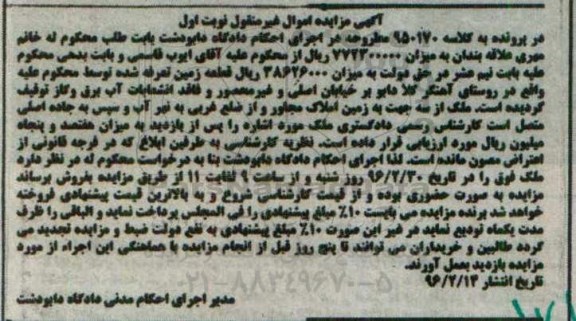 آگهی مزایده اموال غیرمنقول نوبت اول
در پرونده به کلاسه ۹۵۰۱۷۰ مطروحه در اجرای احکام دادگاه دابودشت بابت طلب محکوم له خانم
مهری علاقه بندان به میزان ریال از محکوم علیه آقای ایوب قاسمی و بابت بدهی محکوم
علیه بابت نیم عشر در حق دولت به میزان ۳۸۶۲۶۰۰۰ ریال قطعه زمین تعرفه شده توسط محکوم علیه
واقع در روستای آهنگر کلا دابو بر خیابان اصلی و غیرمحصور و فاقد انشعابات آب برق وگاز توقیف
گردیده است. ملک از سه جهت به زمین املاک مجاور و از ضلع غربی به نهر آب و سپس به جاده اصلی
متصل است کارشناس رسمی دادگستری ملک مورد اشاره را پس از بازدید به میزان هفتصد و پنجاه
میلیون ریال مورد ارزیابی قرار داده است. نظریه کارشناسی به طرفین ابلاغ که در فرجه قانونی از
اعتراض مصون مانده است. لذا اجرای احکام دادگاه دابودشت بنا به درخواست محکوم له در نظر دارد
ملک فوق را در تاریخ ۹۶/۲/۳۰ روز شنبه و از ساعت ۹ لغایت ۱۱ از طریق مزایده بفروش برساند
مزایده به صورت حضوری بوده و از قیمت کارشناسی شروع و به بالاترین قیمت پیشنهادی فروخته
خواهد شد برنده مزایده می بایست ۱۰٪ مبلغ پیشنهادی را فی المجلس پرداخت نماید و الباقی را ظرف
مدت یکماه تودیع نماید در غیر این صورت ۱۰٪ مبلغ پیشنهادی به نفع دولت ضبط و مزایده تجدید می
گردد طالبین و خریداران می توانند تا پنج روز قبل از انجام مزایده با هماهنگی این اجراء از مورد
مزایده بازدید بعمل آورند.
تاریخ انتشار ۹۶/۲/۱۴
۰۲۱-۸۸۳۴۹۶۷۰-۵
مدیر اجرای احکام مدنی دادگاه دابودشت